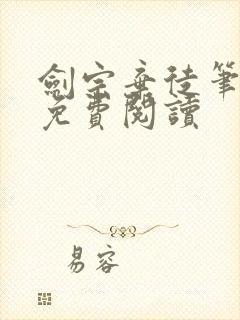 劍宗棄徒筆
免費閱讀
易容